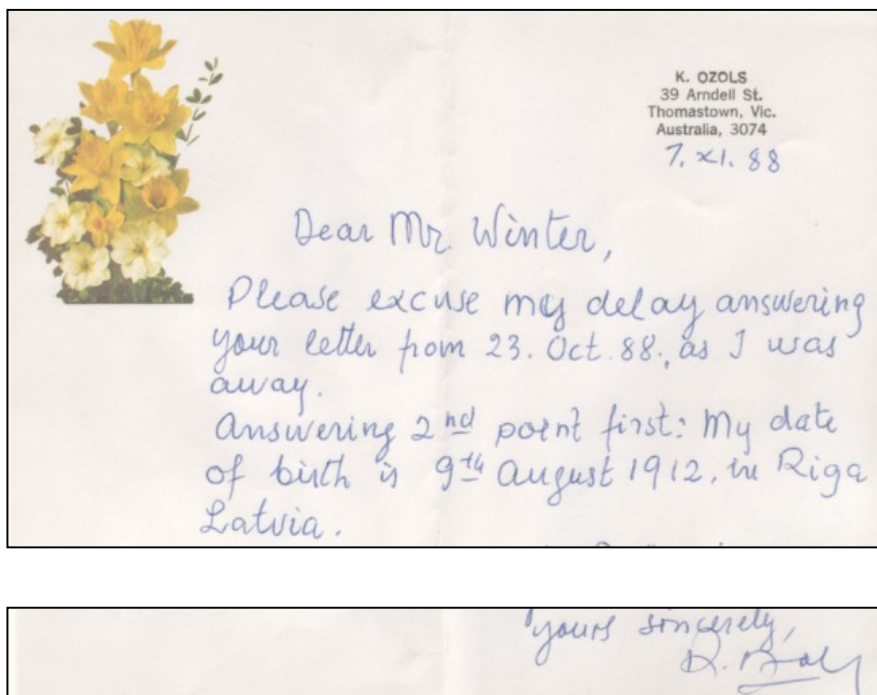 K. OZOLS
39 Arndell St.
Thomastown, Vic.
Australia, 3074
7. XI. 88
Dear Mr. Winter,
Please excuse my delay answering
your letter from 23. Oct. 88., as I was
away.
Answering 2nd point first: My date
of birth is 9th August 1912, in Riga
Latvia.
yours sincerely,